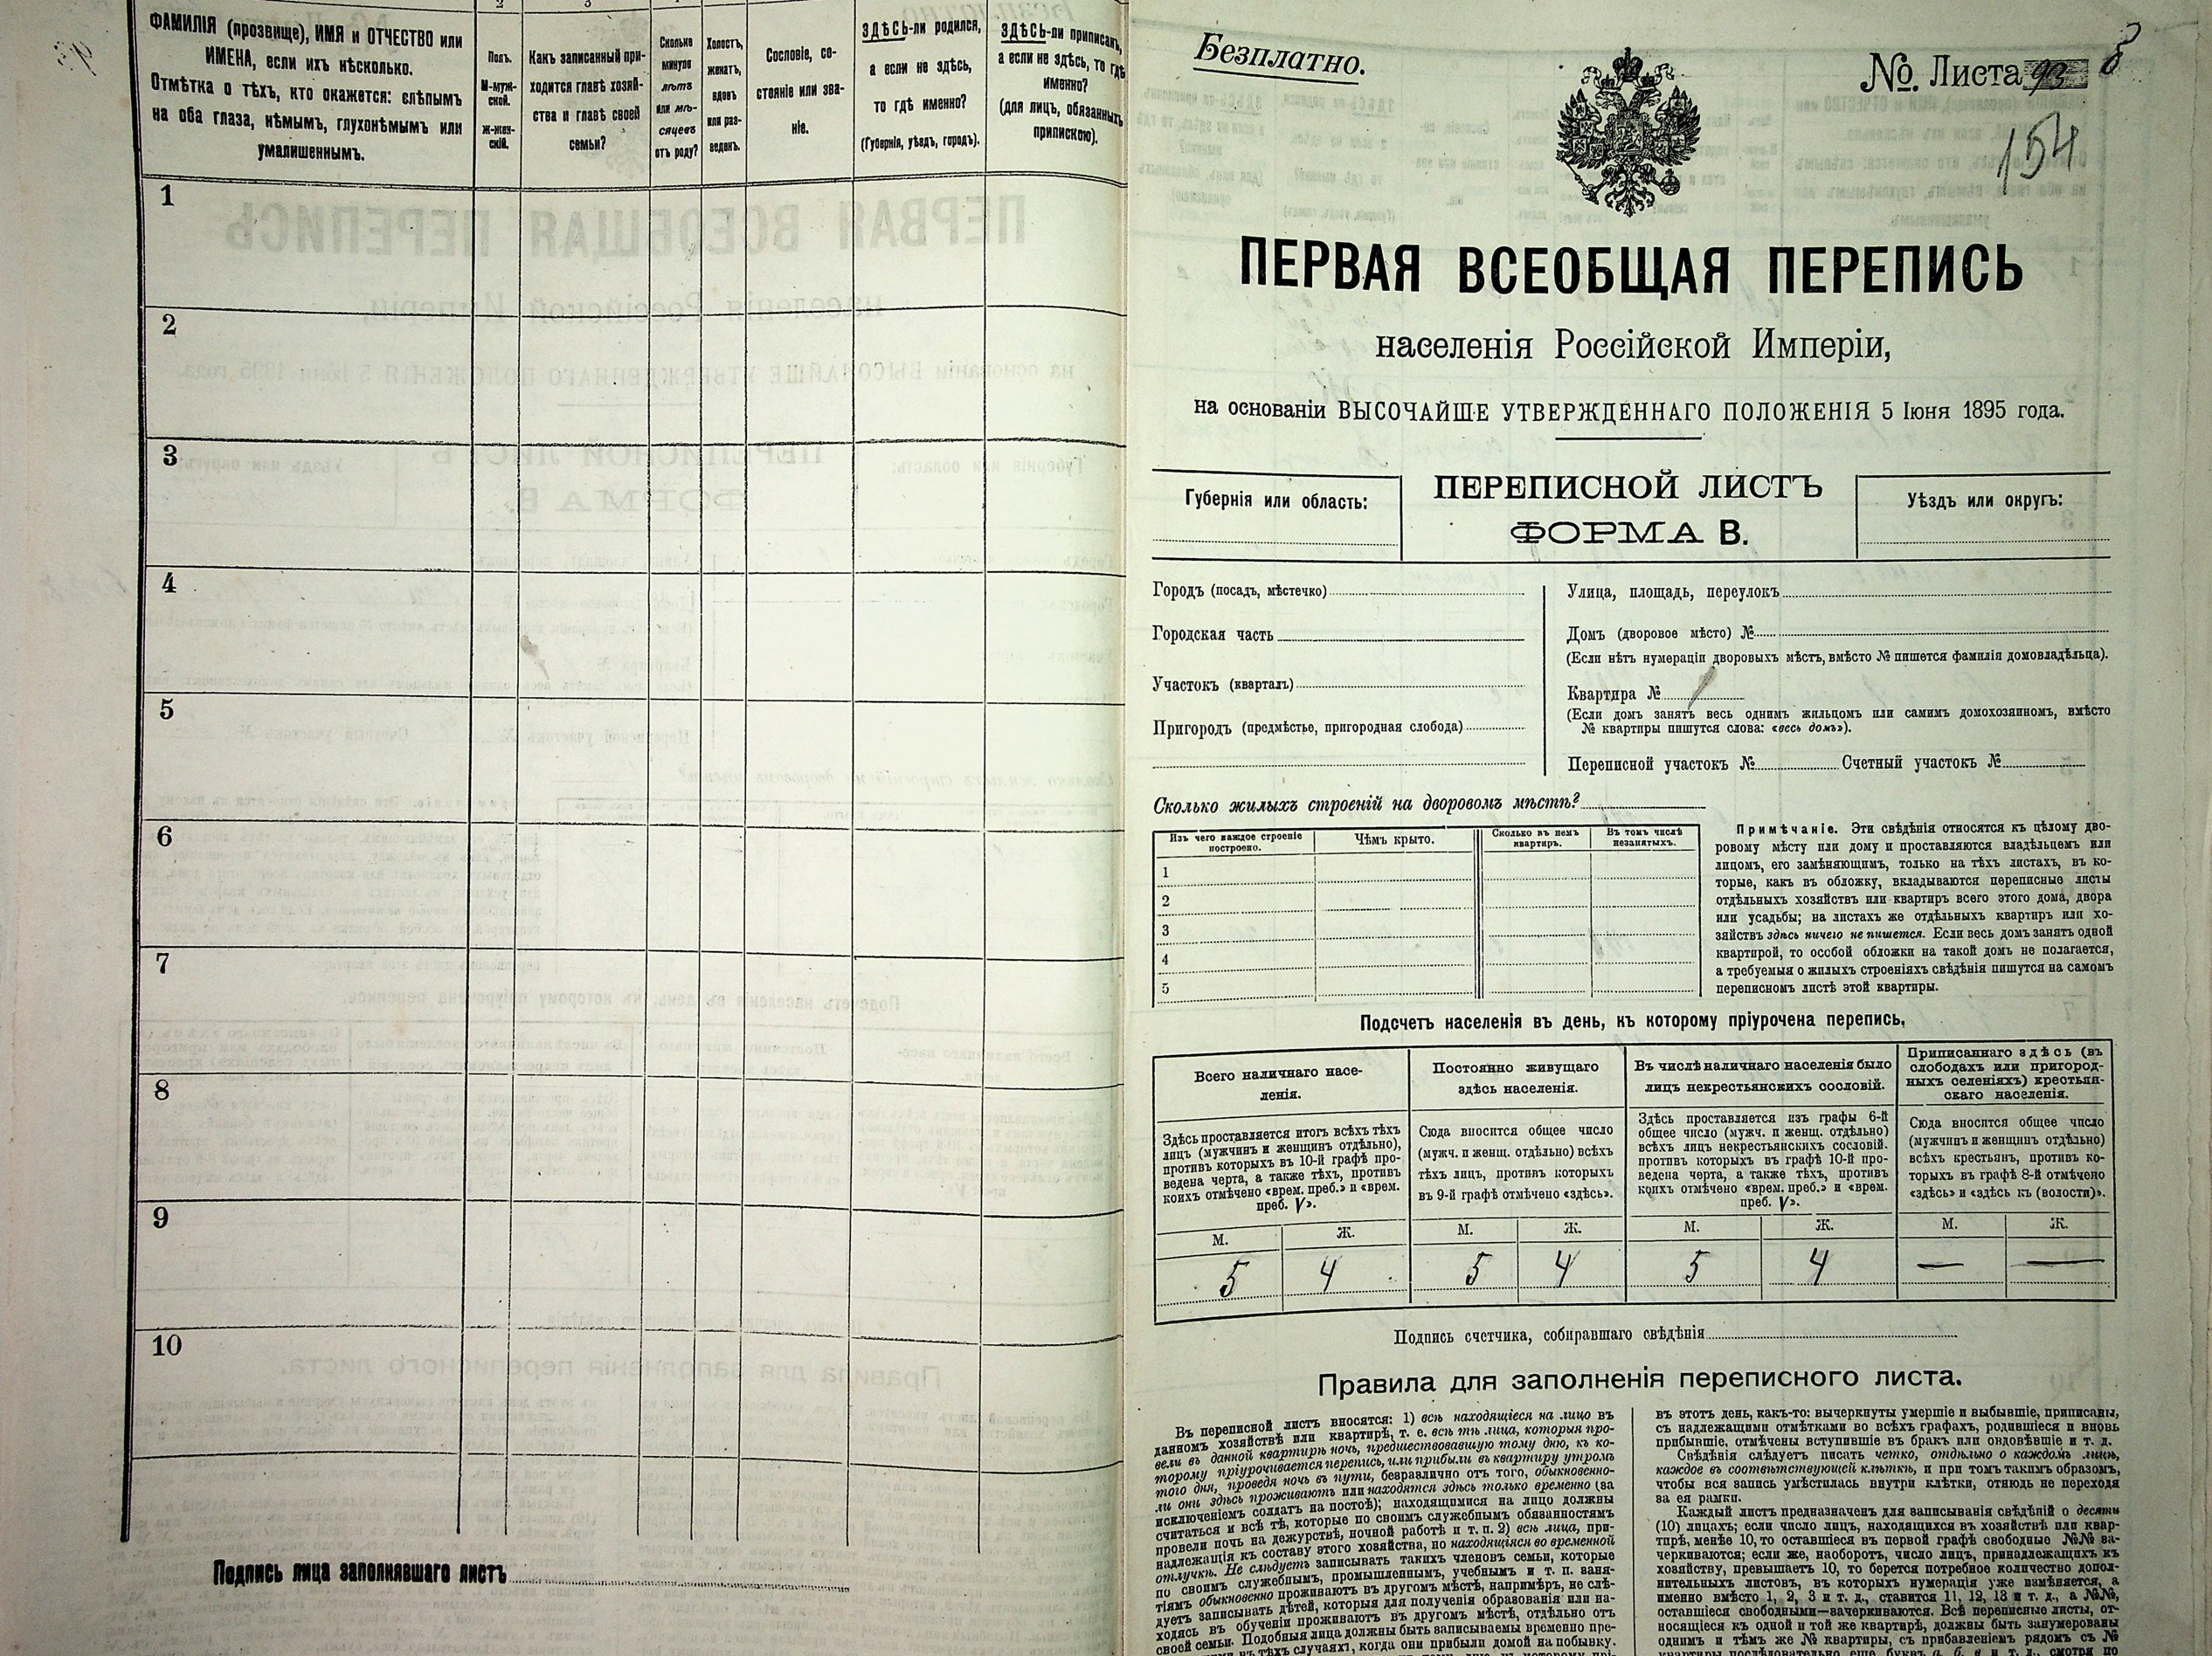 2
3
ФАМИЛІЯ (прозвище), ИМЯ и ОТЧЕСТВО или
ИМЕНА, если ихъ нѣсколько.
Отмѣтка о тѣхъ, кто окажется: слѣпымъ
на оба глаза, нѣмымъ, глухонѣмымъ или
умалишеннымъ.
Полъ.
М-муж-
ской.
Ж-жен-
скій.
Какъ записанный при-
ходится главѣ хозяй-
ства и главѣ своей
семьи?
Сколько
минуло
лѣтъ
или мѣ-
сяцевъ
отъ роду?
Холостъ,
женатъ,
вдовъ
или раз-
веденъ.
Сословіе, со-
стояніе или зва-
ніе.
ЗДѢСЬ-ли родился,
а если не здѣсь,
то гдѣ именно?
(Губернія, уѣздъ, городъ).
ЗДѢСЬ-ли приписанъ,
а если не здѣсь, то гдѣ
именно?
(для лицъ, обязанныхъ
припискою).
1
2
3
4
5
6
7
8
9
10
Подпись лица заполнявшаго листъ
Безплатно.
№ Листа 93
154
ПЕРВАЯ ВСЕОБЩАЯ ПЕРЕПИСЬ
населенія Россійской Имперіи,
на основаніи ВЫСОЧАЙШЕ УТВЕРЖДЕННАГО ПОЛОЖЕНІЯ 5 Іюня 1895 года.
Губернія или область:
ПЕРЕПИСНОЙ ЛИСТЪ
ФОРМА В.
Уѣздъ или округъ:
Городъ (посадъ, мѣстечко)
Городская часть
Участокъ (кварталъ)
Пригородъ (предмѣстье, пригородная слобода)
Улица, площадь, переулокъ
Домъ (дворовое мѣсто) №
(Если нѣтъ нумераціи дворовыхъ мѣстъ, вмѣсто № пишется фамилія домовладѣльца).
Квартира №
(Если домъ занятъ весь однимъ жильцомъ или самимъ домохозяиномъ, вмѣсто
№ квартиры пишутся слова: «весь домъ»).
Переписной участокъ № Счетный участокъ №
Сколько жилыхъ строеній на дворовомъ мѣстѣ?
Изъ чего каждое строеніе
построено.
Чѣмъ крыто.
Сколько въ немъ
квартиръ.
Въ томъ числѣ
незанятыхъ.
1
2
3
4
5
Примѣчаніе. Эти свѣдѣнія относятся къ цѣлому дво-
ровому мѣсту или дому и проставляются владѣльцемъ или
лицомъ, его замѣняющимъ, только на тѣхъ листахъ, въ ко-
торые, какъ въ обложку, вкладываются переписные листы
отдѣльныхъ хозяйствъ или квартиръ всего этого дома, двора
или усадьбы; на листахъ же отдѣльныхъ квартиръ или хо-
зяйствъ здѣсь ничего не пишется. Если весь домъ занятъ одной
квартирой, то особой обложки на такой домъ не полагается,
а требуемыя о жилыхъ строеніяхъ свѣдѣнія пишутся на самомъ
переписномъ листѣ этой квартиры.
Подсчетъ населенія въ день, къ которому пріурочена перепись.
Всего наличнаго насе-
ленія.
Здѣсь проставляется итогъ всѣхъ тѣхъ
лицъ (мужчинъ и женщинъ отдѣльно),
противъ которыхъ въ 10-й графѣ про-
ведена черта, а также тѣхъ, противъ
коихъ отмѣчено «врем. преб.» и «врем.
преб. V».
Постоянно живущаго
здѣсь населенія.
Сюда вносится общее число
(мужч. и женщ. отдѣльно) всѣхъ
тѣхъ лицъ, противъ которыхъ
въ 9-й графѣ отмѣчено «здѣсь».
Въ числѣ наличнаго населенія было
лицъ некрестьянскихъ сословій.
Здѣсь проставляется изъ графы 6-й
общее число (мужч. и женщ. отдѣльно)
всѣхъ лицъ некрестьянскихъ сословій.
противъ которыхъ въ графѣ 10-й про-
ведена черта, а также тѣхъ, противъ
коихъ отмѣчено «врем. преб.» и «врем.
преб. V».
Приписаннаго здѣсь (въ
слободахъ или пригород-
ныхъ селеніяхъ) крестьян-
скаго населенія.
Сюда вносится общее число
(мужчинъ и женщинъ отдѣльно)
всѣхъ крестьянъ, противъ ко-
торыхъ въ графѣ 8-й отмѣчено
«здѣсь» и «здѣсь къ (волости)».
М. Ж. М. Ж. М. Ж. М. Ж.
5 4 5 4 5 4 — —
Подпись счетчика, собиравшаго свѣдѣнія
Правила для заполненія переписного листа.
Въ переписной листъ вносятся: 1) всѣ находящіеся на лицо въ
данномъ хозяйствѣ или квартирѣ, т. е. всѣ тѣ лица, которыя про-
вели въ данной квартирѣ ночь, предшествовавшую тому дню, къ ко-
торому пріурочивается перепись, или прибыли въ квартиру утромъ
того дня, проведя ночь въ пути, безразлично отъ того, обыкновенно-
ли они здѣсь проживаютъ или находятся здѣсь только временно (за
исключеніемъ солдатъ на постоѣ); находящимися на лицо должны
считаться и всѣ тѣ, которые по своимъ служебнымъ обязанностямъ
провели ночь на дежурствѣ, ночной работѣ и т. п. 2) всѣ лица, при-
надлежащія къ составу этого хозяйства, но находящіяся во временной
отлучкѣ. Не слѣдуетъ записывать такихъ членовъ семьи, которые
по своимъ служебнымъ, промышленнымъ, учебнымъ и т. п. заня-
тіямъ обыкновенно проживаютъ въ другомъ мѣстѣ, напримѣръ, не слѣ-
дуетъ записывать дѣтей, которыя для полученія образованія или на-
ходясь въ обученіи проживаютъ въ другомъ мѣстѣ, отдѣльно отъ
своей семьи. Подобныя лица должны быть записываемы временно пре-
въ тѣхъ случаяхъ, когда они прибыли домой на побывку.
въ этотъ день, какъ-то: вычеркнуты умершіе и выбывшіе, приписаны,
съ надлежащими отмѣтками во всѣхъ графахъ, родившіеся и вновь
прибывшіе, отмѣчены вступившіе въ бракъ или овдовѣвшіе и т. д.
Свѣдѣнія слѣдуетъ писать четко, отдѣльно о каждомъ лицѣ,
каждое въ соотвѣтствующей клѣткѣ, и при томъ такимъ образомъ,
чтобы вся запись умѣстилась внутри клѣтки, отнюдь не переходя
за ея рамки.
Каждый листъ предназначенъ для записыванія свѣдѣній о десяти
(10) лицахъ; если число лицъ, находящихся въ хозяйствѣ или квар-
тирѣ, менѣе 10, то оставшіеся въ первой графѣ свободные №№ за-
черкиваются; если же, наоборотъ, число лицъ, принадлежащихъ къ
хозяйству, превышаетъ 10, то берется потребное количество допол-
нительныхъ листовъ, въ которыхъ нумерація уже измѣняется, а
именно вмѣсто 1, 2, 3 и т. д., ставится 11, 12, 13 и т. д., а №№,
оставшіеся свободными—зачеркиваются. Всѣ переписные листы, от-
носящіеся къ одной и той же квартирѣ, должны быть занумерованы
однимъ и тѣмъ же № квартиры, съ прибавленіемъ рядомъ съ №